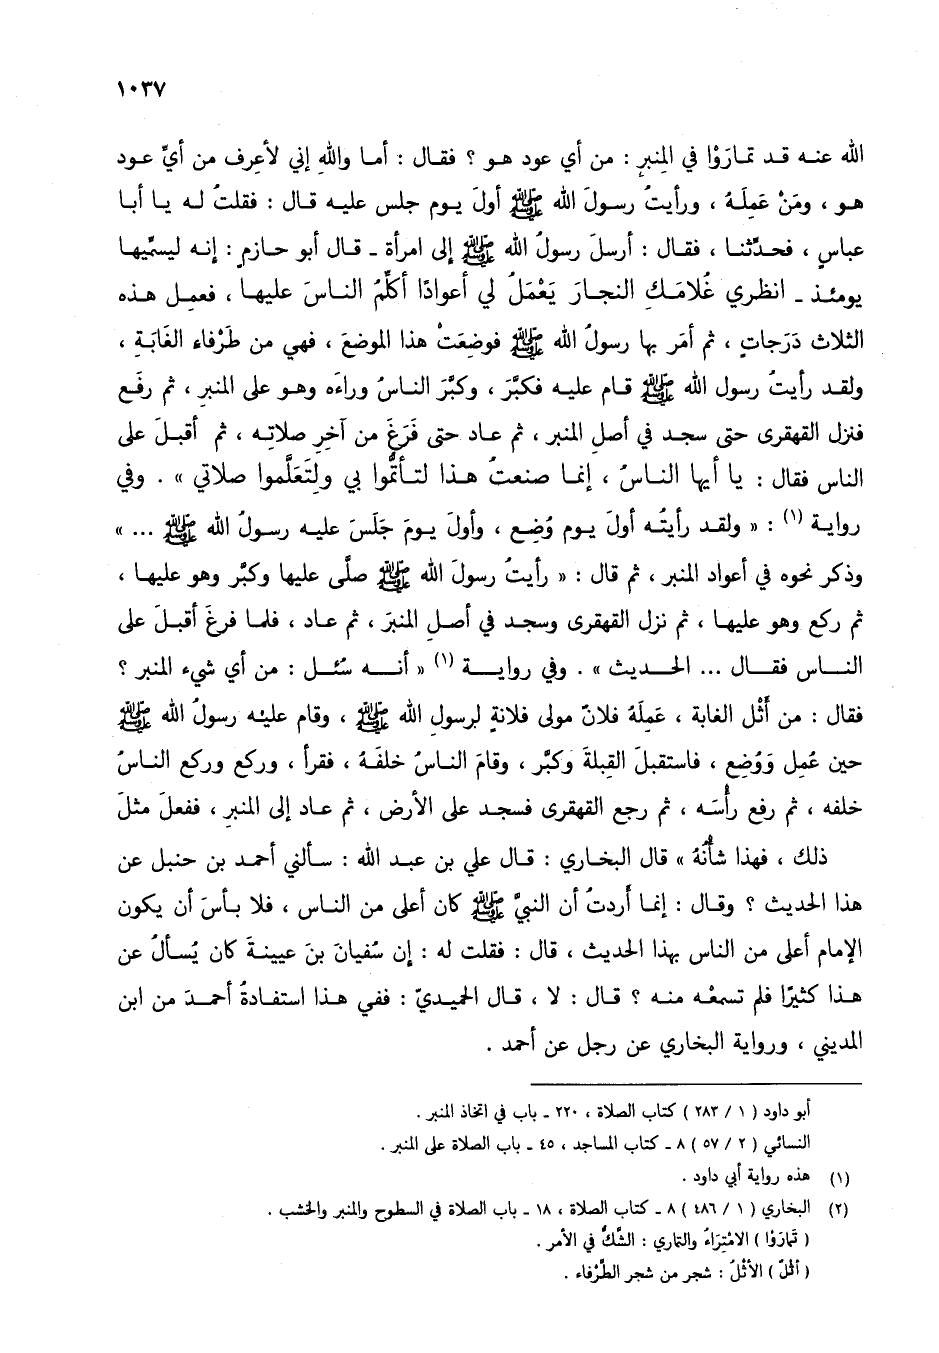 ١٠٣٧
الله عنـه قـد تمارَوْا في المِنبرِ : من أي عود هـو ؟ فقـال : أمـا واللهِ إني لأعِرف من أيِّ عـود
هـو ، ومَنْ عَمِلَـهُ ، ورأيتُ رسـولَ الله ﷺ أولَ يـوم جلس عليـه قـال : فقلتُ لـه يـا أبـا
عباسٍ ، فحـدِّثنـا ، فقـال : أرسلَ رسولُ الله ﷺ إلى امرأة ـ قـال أبو حـازمٍ : إنـه ليسمِّيهـا
يومئـذ ـ انظري غُلامَـكِ النجـارَ يَعْمَلُ لي أعوادًا أكلِّمُ النـاسَ عليهـا ، فعمِـل هـذه
الثلاث دَرَجاتٍ ، ثم أمَر بها رسولُ الله ﷺ فوضِعَتْ هذا الموضعَ ، فهي من طَرْفاء الغَابَةِ ،
ولقـد رأيتُ رسول الله ﷺ قـام عليـه فكبَّرَ ، وكبَّرَ النـاسُ وراءَه وهـو على المنبرِ ، ثم رفَـع
فنزل القهقرى حتى سجـد في أصلِ المنبر ، ثم عـاد حتى فَرَغَ من آخِرِ صلاتِـه ، ثم أقبـلَ على
الناس فقال : يا أيها النـاسُ ، إنمـا صنعتُ هـذا لتـأتمُّوا بي ولِتَعَلَّموا صلاتي » . وفي
روايـة (١) : « ولقـد رأيتُـه أولَ يـوم وُضِـع ، وأولَ يـومَ جَلَسَ عليـه رسـولُ الله ﷺ ... »
وذكر نحوه في أعواد المنبر ، ثم قال : « رأيتُ رسولَ الله ﷺ صلَّى عليها وكبَّر وهو عليها ،
ثم ركع وهو عليهـا ، ثم نزل القهقرى وسجـد في أصـلِ المنبَر ، ثم عـاد ، فلمـا فرغَ أقبـلَ على
النـاس فقـال ... الحـديث » . وفي روايـة (١) « أنـه سُئـل : من أي شيء المنبر ؟
فقال : من أَثْل الغابة ، عَمِلَهُ فلانٌ مولى فلانةٍ لرسولِ الله ﷺ ، وقام عليْه رسولُ الله ﷺ
حين عُمِل وَوُضِع ، فاستقبلَ القِبلةَ وكبَّر ، وقامَ النـاسُ خلفَـهُ ، فقرأ ، وركع وركع النـاسُ
خلفه ، ثم رفع رأْسَـه ، ثم رجع القهقرى فسجـد على الأرض ، ثم عـاد إلى المنبرِ ، ففعلَ مثلَ
ذلك ، فهذا شأْنُهُ » قال البخاري : قال علي بن عبد الله : سـألني أحمـد بن حنبل عن
هذا الحديث ؟ وقـال : إنمـا أردتُ أن النبيَّ ﷺ كان أعلى من النـاس ، فلا بـأسَ أن يكون
الإمام أعلى من الناس بهذا الحديث ، قال : فقلت له : إن سُفيانَ بنَ عيينـةَ كان يُسـألُ عن
هـذا كثيرًا فلم تسمعْـه منـه ؟ قـال : لا ، قـال الحميـديّ : ففي هـذا استفـادةُ أحمـدَ من ابن
المديني ، ورواية البخاري عن رجل عن أحمد .
أبو داود ( ١ / ٢٨٣ ) كتاب الصلاة ، ٢٢٠ ـ باب في اتخاذ المنبر .
النسائي ( ٢ / ٥٧ ) ٨ ـ كتاب المساجد ، ٤٥ ـ باب الصلاة على المنبر .
(١) هذه رواية أبي داود .
(٢) البخاري ( ١ / ٤٨٦ ) ٨ ـ كتاب الصلاة ، ١٨ ـ باب الصلاة في السطوح والمنبر والخشب .
( تَمَارَوْا ) الامْتِرَاءُ والتماري : الشَّكُّ في الأمر .
( أثْلٌ ) الأَثْلُ : شجر من شجر الطَّرْفاء .